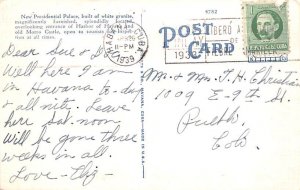 New Presidential Palace, built of white granite,
magnificently furnished, splendidly located,
overlooking entrance of Harbor of Havana and
old Morro Castle, open to tourists for inspec-
tion at all times.
9782
POST
CARD
1939
11-PM
HABANA, CUBA
CUBA
Dear Sue &
Well here I am
in Havana to-day
& all nite. Leave
here Sat. noon
Will be gone three
weeks in all.
Love -
Mr & Mrs. T. H. Christian
1009 E-9th St.
Pueblo
Colo.